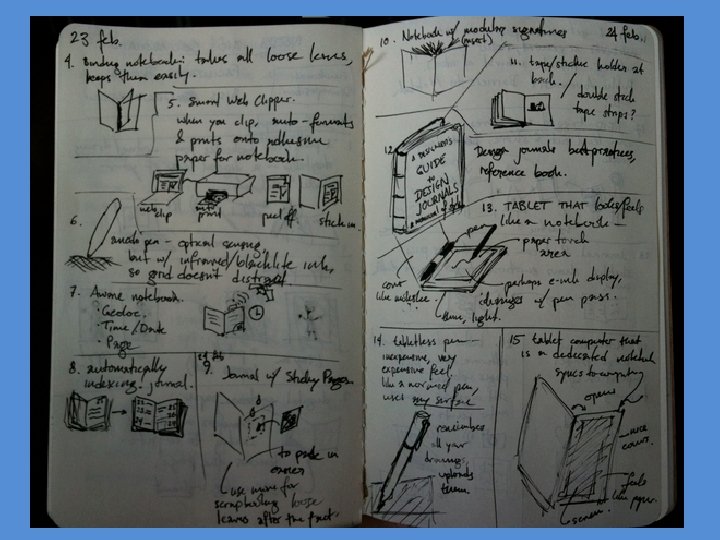 23 feb.
4. Binding notebook: takes all loose leaves,
keeps them easily.
5. Smart Web Clipper.
when you clip, auto-formats
& prints onto adhesive
paper for notebook.
web clip
auto print
peel off
stick in
6.
anoto pen - optical sensing,
but w/ infrared/blacklite ink,
so grid doesn't distract
7. Aware notebook.
· Geoloc.
· Time/Date
· Page
8. automatically
indexing journal.
24 feb
9. Journal w/ Sticky Pages
to paste in
use more for
scrapbooking loose
leaves after the fact.
10. Notebook w/ modular signatures
(insert)
24 feb.
11. tape/sticky holder at
back.
double stick
tape strips?
12.
A DESIGNER'S
GUIDE
to
DESIGN
JOURNALS
Design journals best practices,
reference book.
13. TABLET THAT looks/feels
like a notebook -
pen
paper touch
area
perhaps e-ink display,
changes w/ pen press.
cover
like moleskine.
thin, light.
14. tabletless pen
inexpensive, very
expensive feel
like a normal pen,
uses any surface
remembers
all your
drawings,
uploads
them.
15 tablet computer that
is a dedicated notebook
syncs to computer
opens
nice
cover.
feels
like paper.
screen